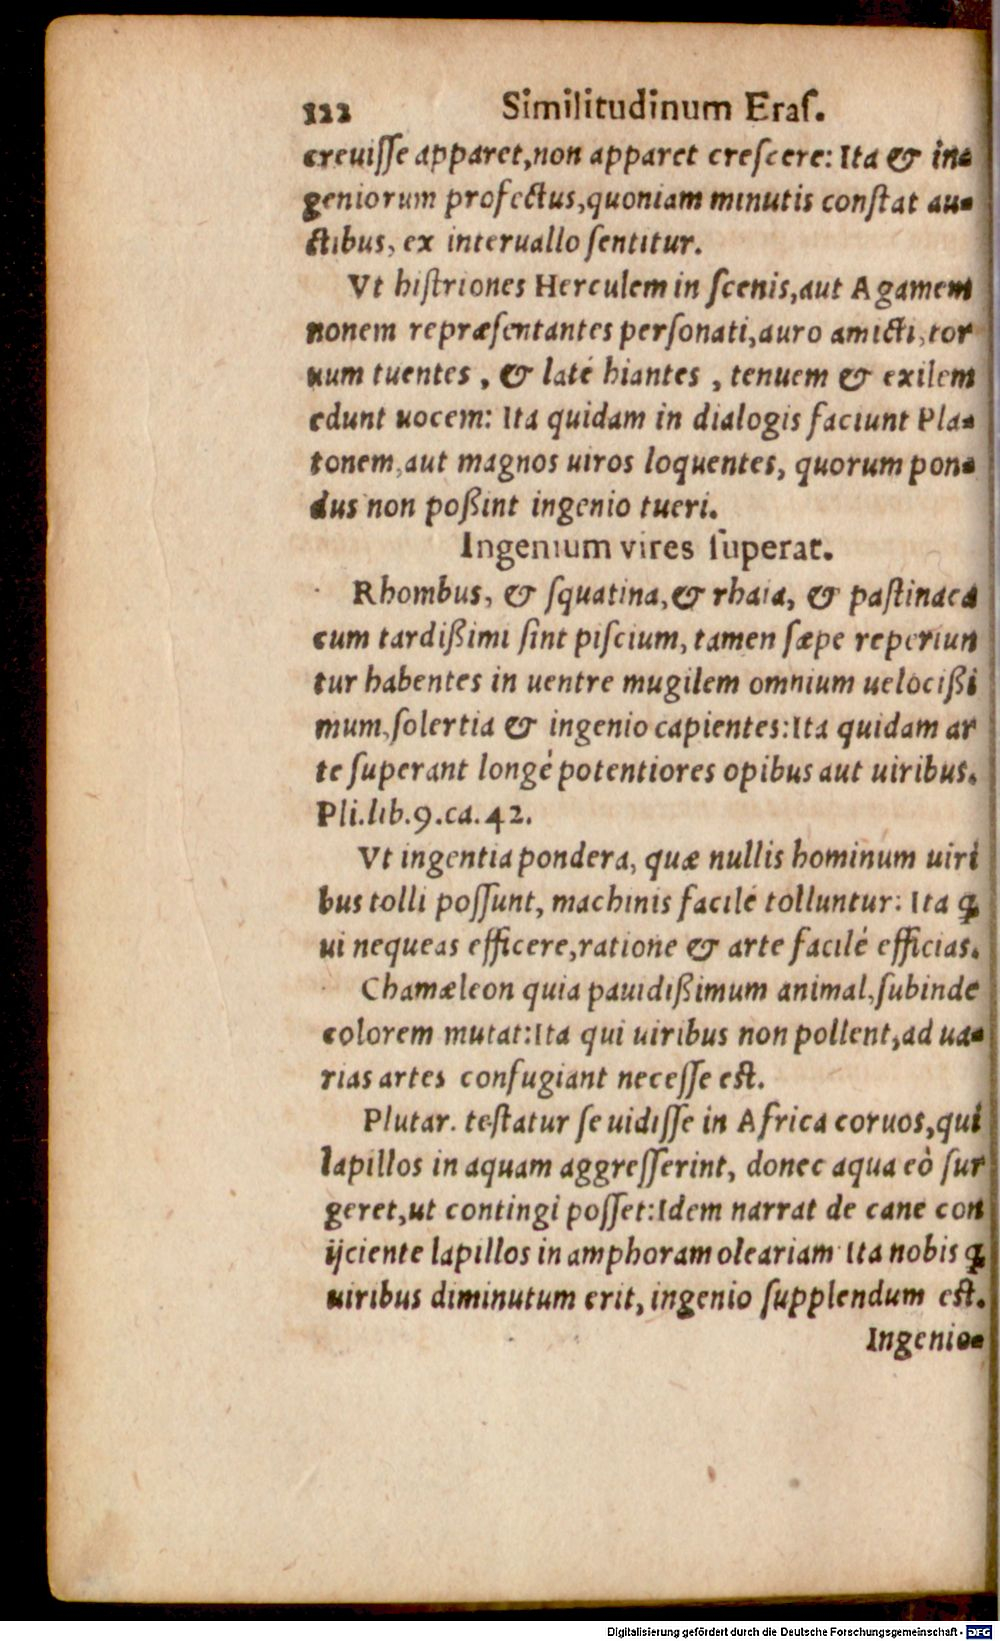 122 Similitudinum Eraſ.
creuiſſe apparet,non apparet creſcere: Ita & in-
geniorum profectus,quoniam minutis conſtat au-
ctibus, ex interuallo ſentitur.
Vt hiſtriones Herculem in ſcenis,aut Agamem
nonem repræſentantes perſonati,auro amicti,tor
uum tuentes , & latè hiantes , tenuem & exilem
edunt uocem: Ita quidam in dialogis faciunt Pla-
tonem,aut magnos uiros loquentes, quorum pon-
dus non poßint ingenio tueri.
Ingenium vires ſuperat.
Rhombus, & ſquatina,& rhaia, & paſtinaca
cum tardißimi ſint piſcium, tamen ſæpe reperiun
tur habentes in uentre mugilem omnium uelocißi
mum,ſolertia & ingenio capientes:Ita quidam ar
te ſuperant longè potentiores opibus aut uiribus.
Pli.lib.9.ca.42.
Vt ingentia pondera, quæ nullis hominum uiri
bus tolli poſſunt, machinis facilè tolluntur: Ita ꝙ
ui nequeas efficere,ratione & arte facilè efficias.
Chamæleon quia pauidißimum animal,ſubinde
colorem mutat:Ita qui uiribus non pollent,ad ua-
rias artes confugiant neceſſe eſt.
Plutar. teſtatur ſe uidiſſe in Africa coruos,qui
lapillos in aquam aggreſſerint, donec aqua eò ſur
geret,ut contingi poſſet:Idem narrat de cane con
ijciente lapillos in amphoram oleariam Ita nobis ꝙ
uiribus diminutum erit, ingenio ſupplendum eſt.
Ingenio-
Digitalisierung gefördert durch die Deutsche Forschungsgemeinschaft - DFG